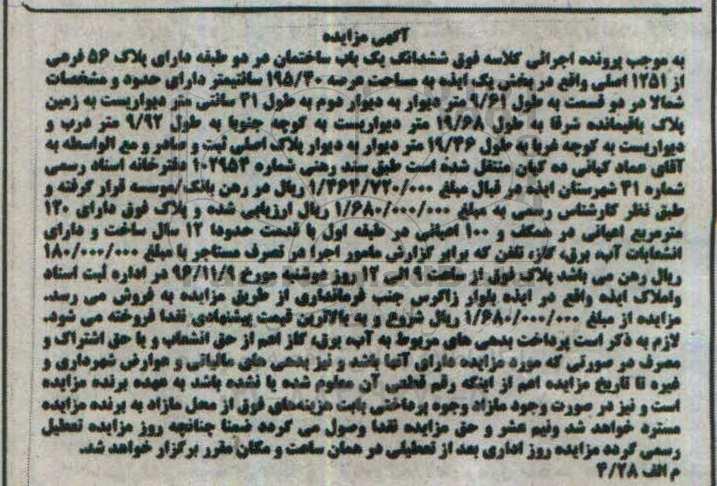 آگهی مزایده
به موجب پرونده اجرائی کلاسه فوق ششدانگ یک باب ساختمان در دو طبقه دارای پلاک ۵۶ فرعی
از ۱۲۵۱ اصلی واقع در بخش یک ایذه به مساحت عرصه ۱۹۵/۳۰ سانتیمتر دارای حدود و مشخصات
شمالا در دو قسمت به طول ۹/۶۱ متر دیوار به دیوار دوم به طول ۳۱ سانتی متر دیواریست به زمین
پلاک باقیمانده شرقا به طول ۱۹/۶۸ متر دیواریست به کوچه جنوبا به طول ۹/۹۲ متر درب و
دیواریست به کوچه غربا به طول ۱۹/۳۶ متر دیوار به دیوار پلاک اصلی ثبت و صادر و مع الواسطه به
آقای عماد کیانی ده کیان منتقل شده است طبق سند رهنی شماره ۱۰۲۹۵۳ دفترخانه اسناد رسمی
شماره ۳۱ شهرستان ایذه در قبال مبلغ ۱/۳۶۳/۷۲۰/۰۰۰ ریال در رهن بانک/موسسه قرار گرفته و
طبق نظر کارشناس رسمی به مبلغ ۱/۶۸۰/۰۰۰/۰۰۰ ریال ارزیابی شده و پلاک فوق دارای ۱۳۰
مترمربع اعیانی در همکف و ۱۰۰ اعیانی در طبقه اول با قدمت حدودا ۱۲ سال ساخت و دارای
انشعابات آب، برق، گاز، تلفن که برابر گزارش مامور اجرا در تصرف مستاجر با مبلغ ۱۸۰/۰۰۰/۰۰۰
ریال رهن می باشد پلاک فوق از ساعت ۹ الی ۱۲ روز دوشنبه مورخ ۹۶/۱۱/۹ در اداره ثبت اسناد
واملاک ایذه واقع در ایذه بلوار زاگرس جنب فرمانداری از طریق مزایده به فروش می رسد.
مزایده از مبلغ ۱/۶۸۰/۰۰۰/۰۰۰ ریال شروع و به بالاترین قیمت پیشنهادی نقدا فروخته می شود.
لازم به ذکر است پرداخت بدهی های مربوط به آب، برق، گاز اعم از حق انشعاب و یا حق اشتراک و
مصرف در صورتی که مورد مزایده دارای آنها باشد و نیز بدهی های مالیاتی و عوارض شهرداری و
غیره تا تاریخ مزایده اعم از اینکه رقم قطعی آن معلوم شده یا نشده باشد به عهده برنده مزایده
است و نیز در صورت وجود مازاد وجوه پرداختی بابت هزینه‌های فوق از محل مازاد به برنده مزایده
مسترد خواهد شد ونیم عشر و حق مزایده نقدا وصول می گردد ضمنا چنانچه روز مزایده تعطیل
رسمی گردد مزایده روز اداری بعد از تعطیلی در همان ساعت و مکان مقرر برگزار خواهد شد.
م الف ۴/۲۸